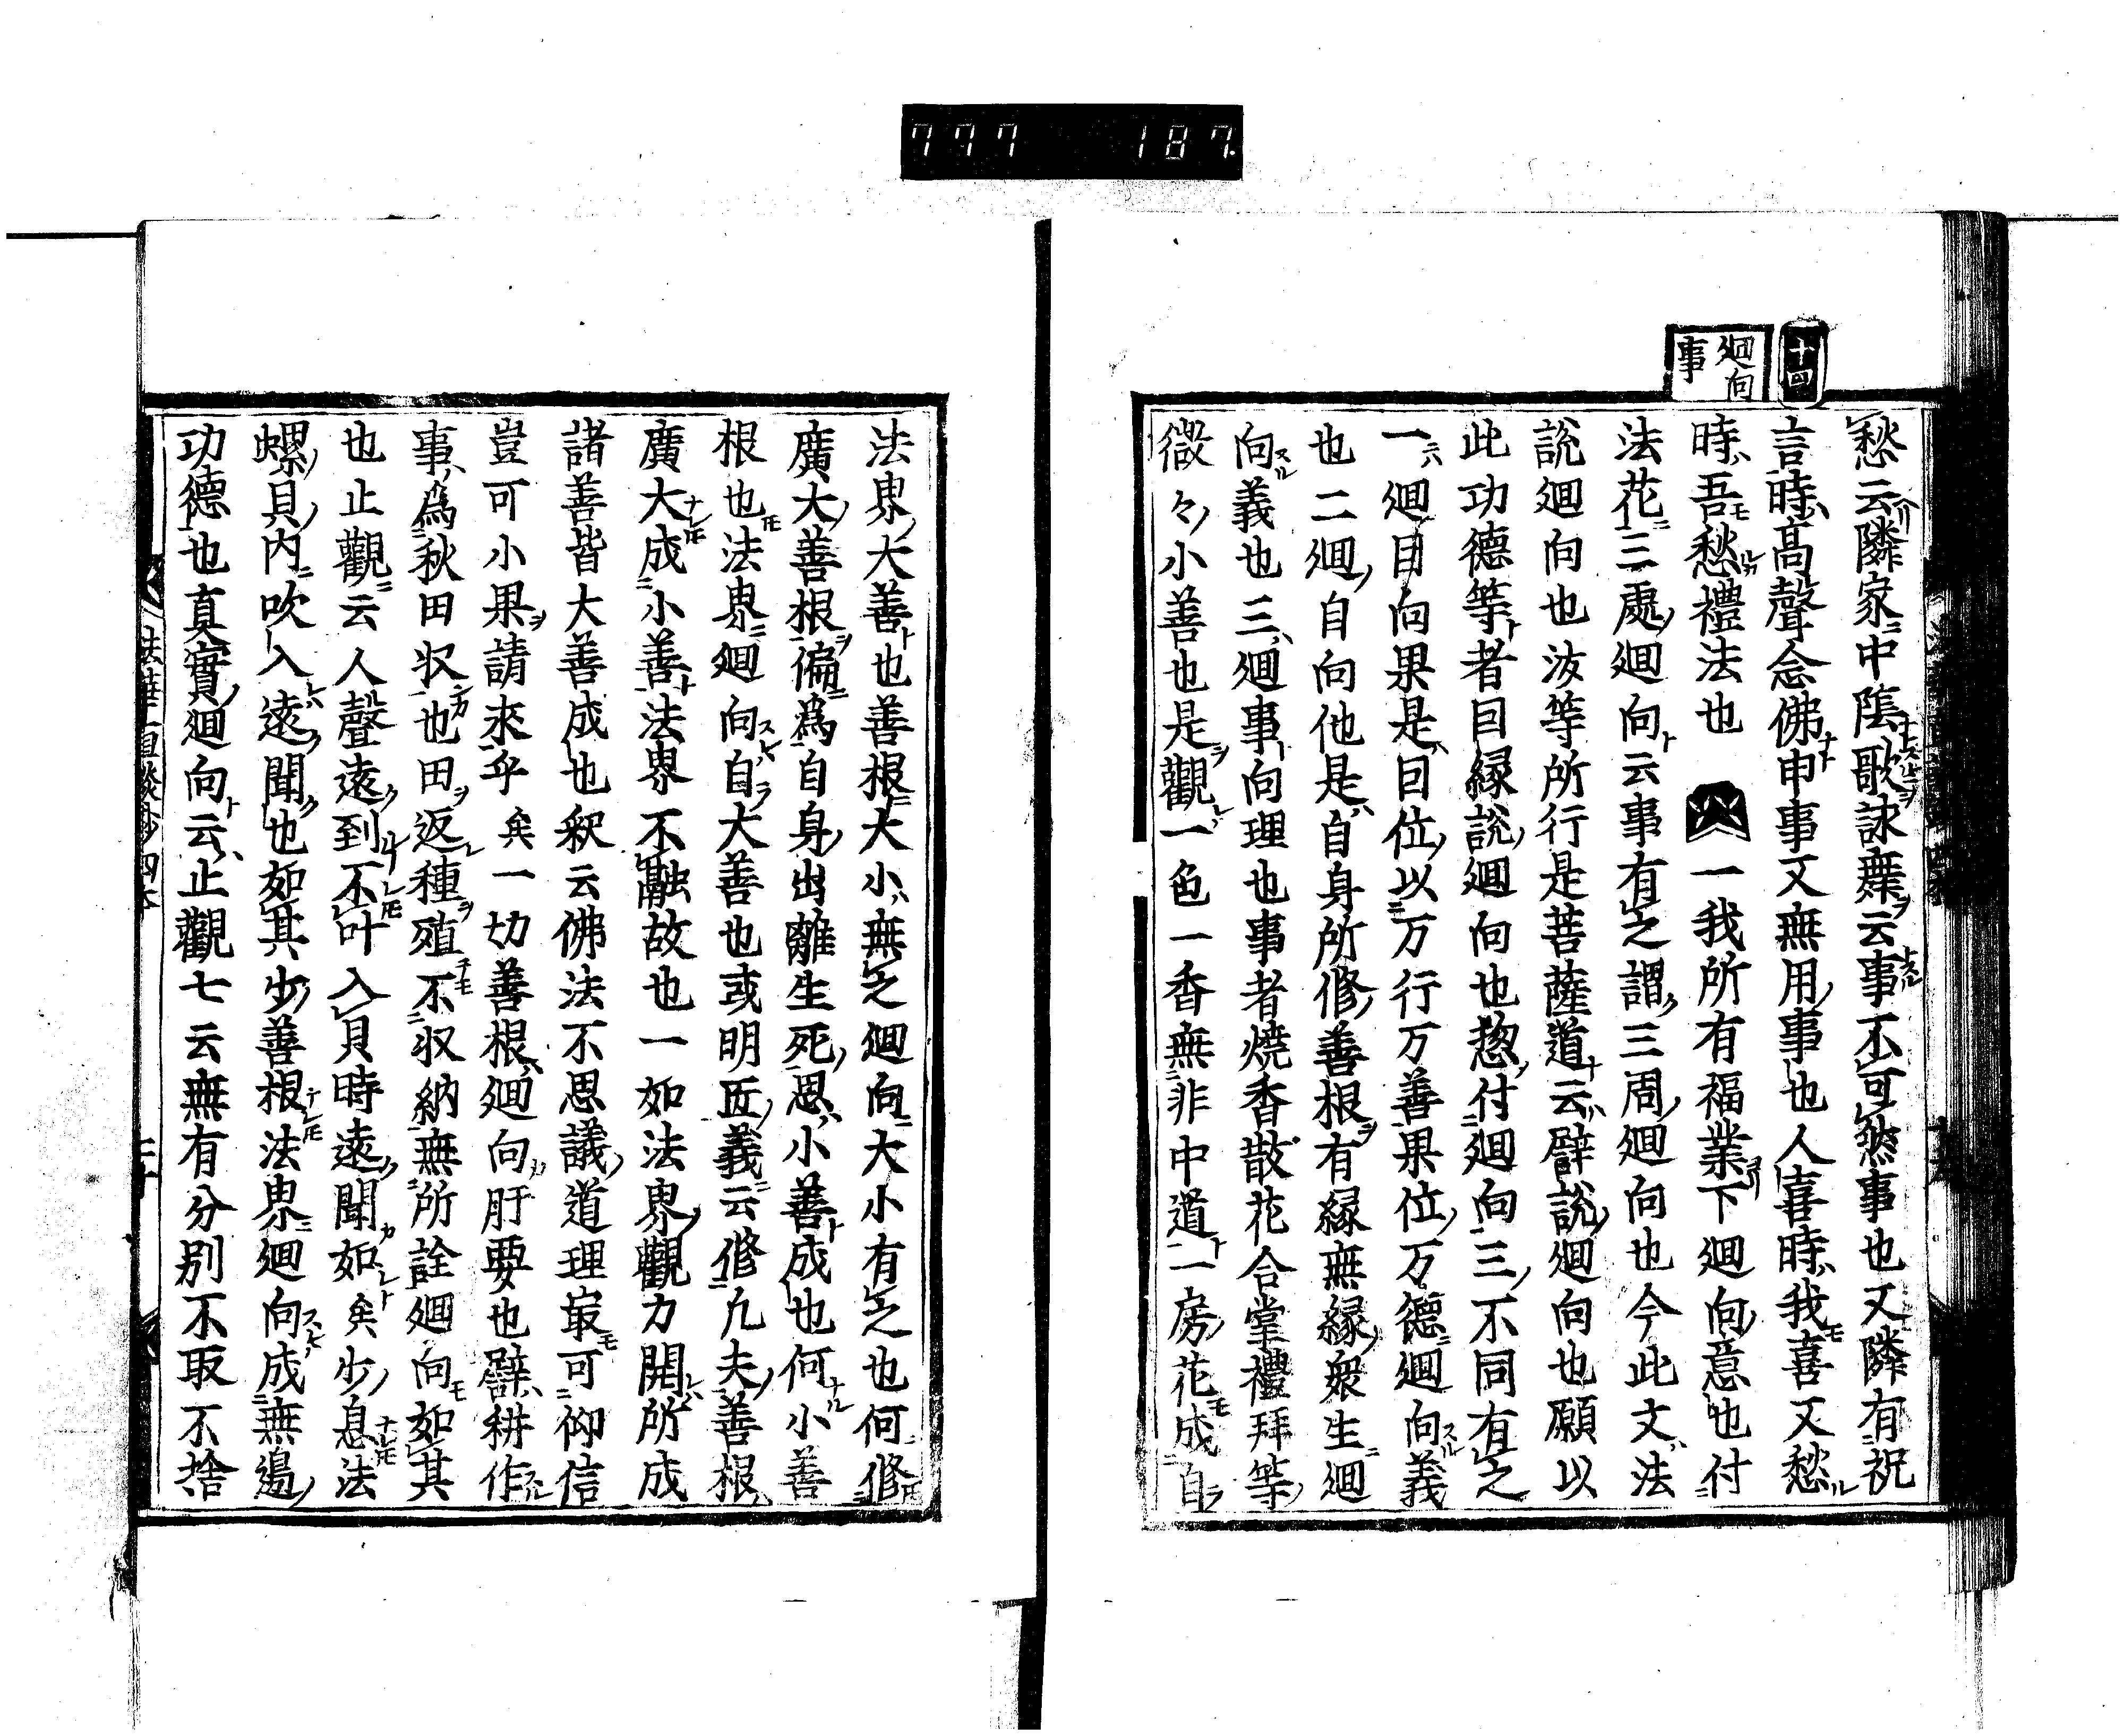 777 187
十四
廻向
事
愁云隣家中陰歌詠舞云事不可然事也又隣有祝
言時高聲念佛申事又無用事也人喜時我喜又愁
時吾愁禮法也 一我所有福業下廻向意也付
法花三處廻向云事有之謂三周廻向也今此文法
說廻向也汝等所行是菩薩道云譬說廻向也願以
此功德等者因緣說廻向也惣付廻向三不同有之
一廻因向果是因位以万行万善果位万德廻向義
也二廻自向他是自身所修善根有緣無緣衆生廻
向義也三廻事向理也事者燒香散花合掌禮拜等
微々小善也是觀一色一香無非中道一房花成自
法界大善也善根大小無之廻向大小有之也何修
廣大善根偏為自身出離生死思小善成也何小善
根也法界廻向自大善也或明匠義云修凡夫善根
廣大成小善法界不融故也一如法界觀力開所成
諸善皆大善成也釈云佛法不思議道理最可仰信
豈可小果請來乎矣一切善根廻向肝要也譬耕作
事為秋田収也田返種殖不収納無所詮廻向如其
也止觀云人聲遠到不叶入貝時遠聞如矣少息法
螺貝内吹入遠聞也如其少善根法界廻向成無邊
功德也真實廻向云止觀七云無有分別不取不捨